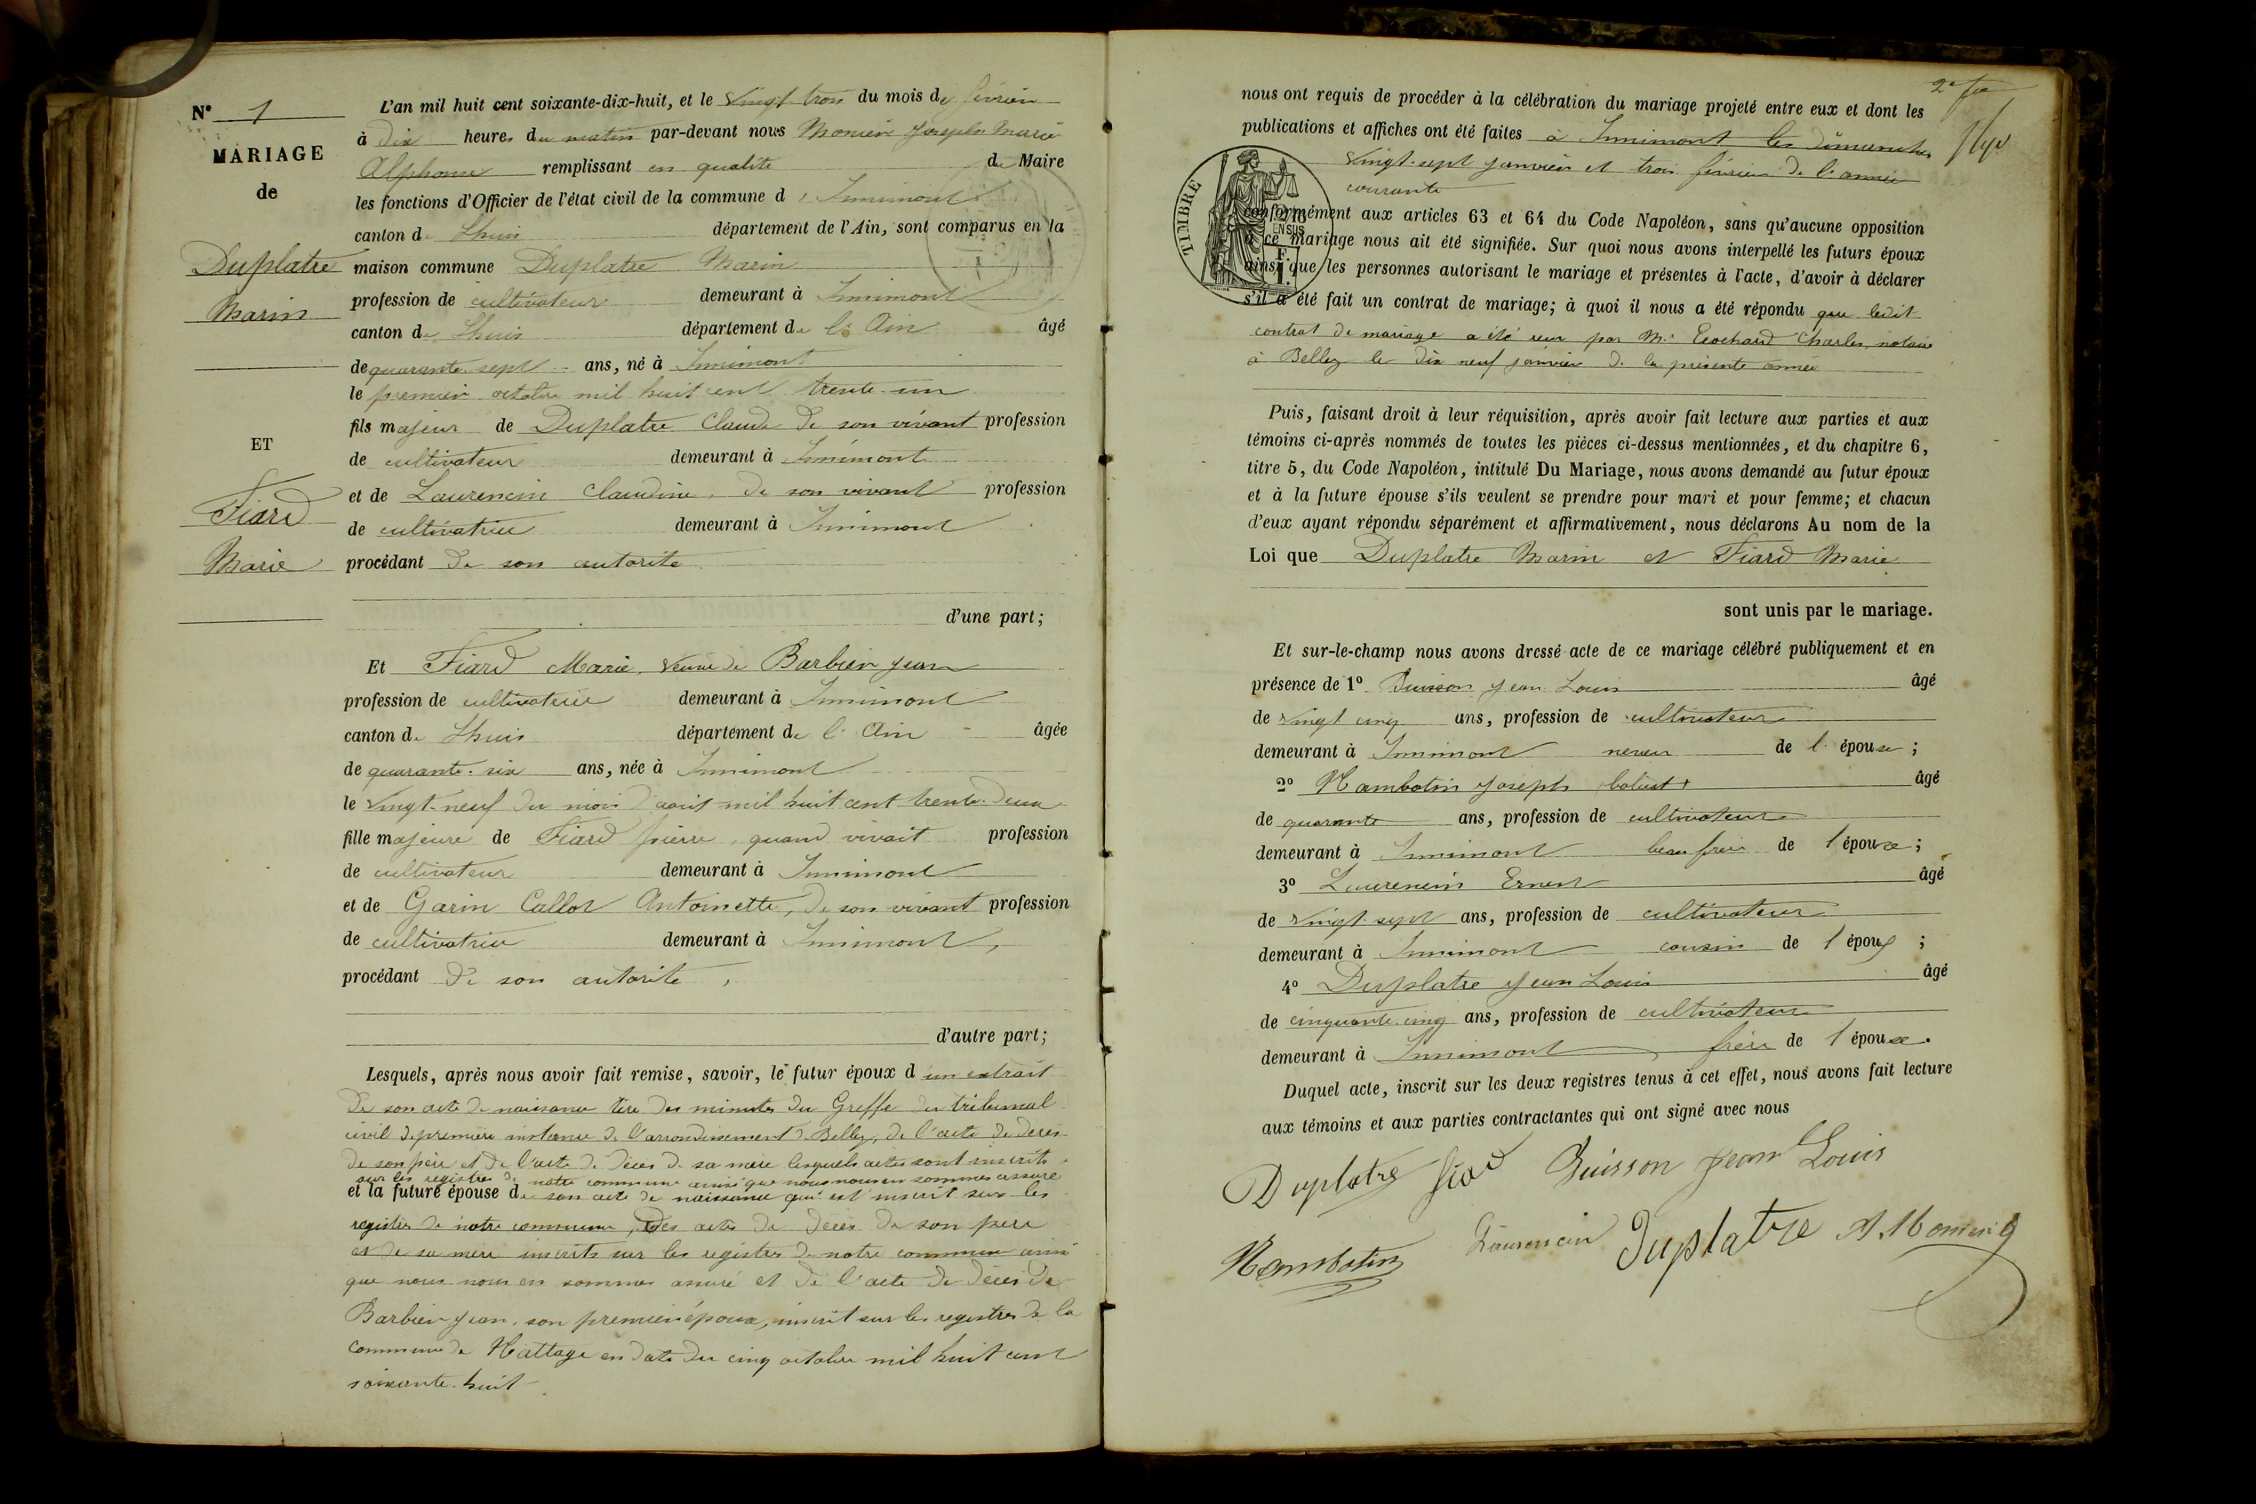 N° 1
MARIAGE
de
Duplatre
Marin
ET
Fiard
Marie
L'an mil huit cent soixante-dix-huit, et le vingt trois du mois de février
à dix heures du matin par-devant nous Monier Joseph Marie
Alphonse remplissant en qualité de Maire
les fonctions d'Officier de l'état civil de la commune d'Innimont
canton de Lhuis département de l'Ain, sont comparus en la
maison commune Duplatre Marin
profession de cultivateur demeurant à Innimont
canton de Lhuis département de l'Ain âgé
de quarante sept ans, né à Innimont
le premier octobre mil huit cent trente un
fils majeur de Duplatre Claude de son vivant profession
de cultivateur demeurant à Innimont
et de Laurencin Claudine, de son vivant profession
de cultivatrice demeurant à Innimont
procédant de son autorité
d'une part;
Et Fiard Marie veuve de Barbier Jean
profession de cultivatrice demeurant à Innimont
canton de Lhuis département de l'Ain âgée
de quarante-six ans, née à Innimont
le vingt-neuf du mois d'août mil huit cent trente-deux
fille majeure de Fiard pierre, quand vivait profession
de cultivateur demeurant à Innimont
et de Garin Callot Antoinette, de son vivant profession
de cultivatrice demeurant à Innimont,
procédant de son autorité,
d'autre part;
Lesquels, après nous avoir fait remise, savoir, le futur époux d'un extrait
de son acte de naissance tiré des minutes du Greffe du tribunal
civil de première instance de l'arrondissement de Belley, de l'acte de décès
de son père et de l'acte de décès de sa mère lesquels actes sont inscrits
sur les registres de notre commune ainsi que nous nous en sommes assuré
et la future épouse de son acte de naissance qui est inscrit sur les
registres de notre commune, des actes de décès de son père
et de sa mère inscrits sur les registres de notre commune ainsi
que nous nous en sommes assuré et de l'acte de décès de
Barbier Jean, son premier époux, inscrit sur les registres de la
commune de Nattage en date du cinq octobre mil huit cent
soixante-huit
2e
nous ont requis de procéder à la célébration du mariage projeté entre eux et dont les
publications et affiches ont été faites à Innimont les dimanches
vingt-sept janvier et trois février de l'année
courante
TIMBRE
conformément aux articles 63 et 64 du Code Napoléon, sans qu'aucune opposition
à ce mariage nous ait été signifiée. Sur quoi nous avons interpellé les futurs époux
ainsi que les personnes autorisant le mariage et présentes à l'acte, d'avoir à déclarer
s'il a été fait un contrat de mariage; à quoi il nous a été répondu que ledit
contrat de mariage a été reçu par Me Charles, notaire
à Belley le dix neuf janvier de la présente année
Puis, faisant droit à leur réquisition, après avoir fait lecture aux parties et aux
témoins ci-après nommés de toutes les pièces ci-dessus mentionnées, et du chapitre 6,
titre 5, du Code Napoléon, intitulé Du Mariage, nous avons demandé au futur époux
et à la future épouse s'ils veulent se prendre pour mari et pour femme; et chacun
d'eux ayant répondu séparément et affirmativement, nous déclarons Au nom de la
Loi que Duplatre Marin et Fiard Marie
sont unis par le mariage.
Et sur-le-champ nous avons dressé acte de ce mariage célébré publiquement et en
présence de 1° Buisson Jean Louis âgé
de vingt cinq ans, profession de cultivateur
demeurant à Innimont neveu de l'épouse;
2° Hambotin Joseph âgé
de quarante ans, profession de cultivateur
demeurant à Innimont beau frère de l'épouse;
3° Laurencin Ernest âgé
de vingt-sept ans, profession de cultivateur
demeurant à Innimont cousin de l'époux;
4° Duplatre Jean Louis âgé
de cinquante-cinq ans, profession de cultivateur
demeurant à Innimont, frère de l'époux.
Duquel acte, inscrit sur les deux registres tenus à cet effet, nous avons fait lecture
aux témoins et aux parties contractantes qui ont signé avec nous
Duplatre fiard Buisson Jean Louis
Hambotin Laurencin Duplatre